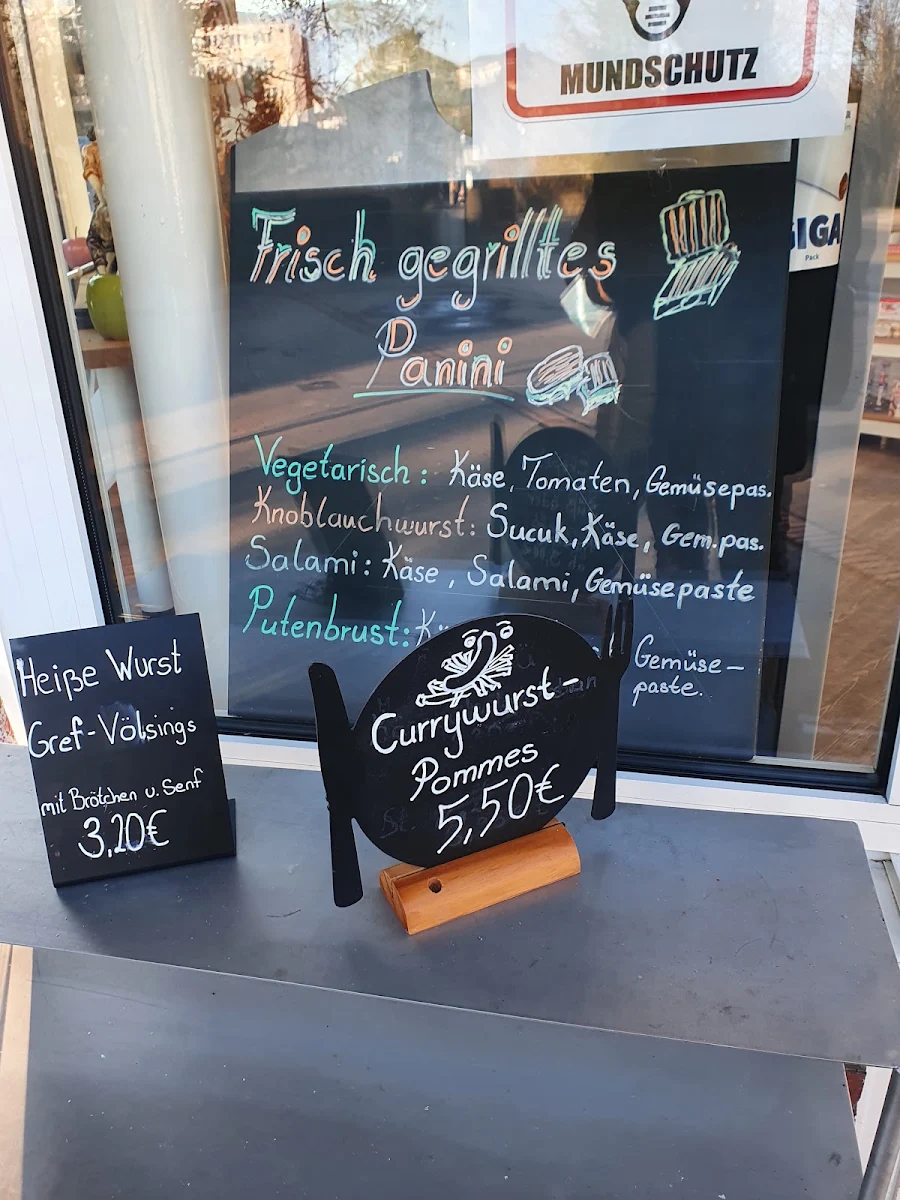 MUNDSCHUTZ
GIGA
Pack
Frisch gegrilltes
Panini
Vegetarisch: Käse, Tomaten, Gemüsepas.
Knoblauchwurst: Sucuk, Käse, Gem.pas.
Salami: Käse, Salami, Gemüsepaste
Putenbrust: Kä
Gemüse-
paste.
Heiße Wurst
Gref-Völsings
mit Brötchen u. Senf
3,20€
Currywurst-
Pommes
5,50€